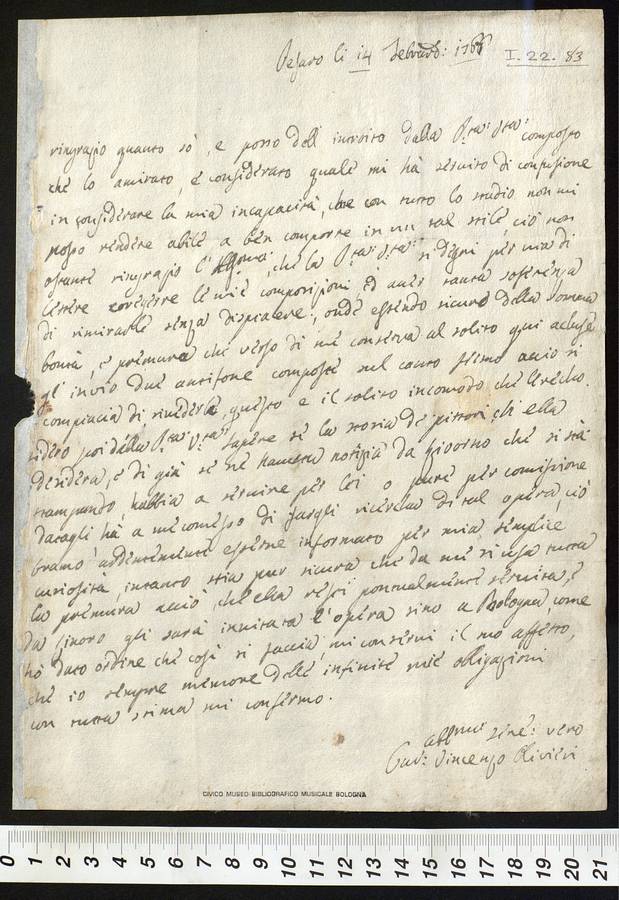 Pesaro li 14 Febraro: 1766
I. 22. 83
ringrazio quanto sò, e posso dell' introito della P.tà: Sua: composto
che lo ammirato, e considerato quale mi hà servito di confusione
in considerare la mia incapacità, che con tutto lo studio non mi
posso rendere abile a ben comporre in un tal stile, ciò non
ostante ringrazio l' che la P.tà: Sua: si degni per via di
lettere coregere le mie composizioni ed aver tanta soferenza
di rimirarle senza dispiacere, onde essendo sicuro della somma
bontà, e premura che verso di me conserva al solito qui acluse
gl' invio due antifone composte sul canto fermo acciò si
compiacia di rivederle, questo e il solito incomodo che li recho.
poi dalla P.tà: V.ra: sapere se la storia de pittori che ella
desidera, e di già se ne haveva notizia da che si stà
stampando, habbia a servire per lei o pure per comissione
datagli hà a me comesso di fargli ricercha di tal opera, ciò
bramo ardentemente esserne informato per mia semplice
curiosità, intanto stia pur sicura che da me si usa tutta
la premura acciò che ella resti pontualmente servita, e
da gli sarà inviata l' opera sino a Bologna come
hò dato ordine che così si faccia, mi conservi il suo affetto,
che io sempre memore delle infinite mie obligazioni
con tutta stima mi confermo.
aff.mo ser.e: vero
Gud: Vincenzo Olivieri
CIVICO MUSEO BIBLIOGRAFICO MUSICALE BOLOGNA
0 1 2 3 4 5 6 7 8 9 10 11 12 13 14 15 16 17 18 19 20 21